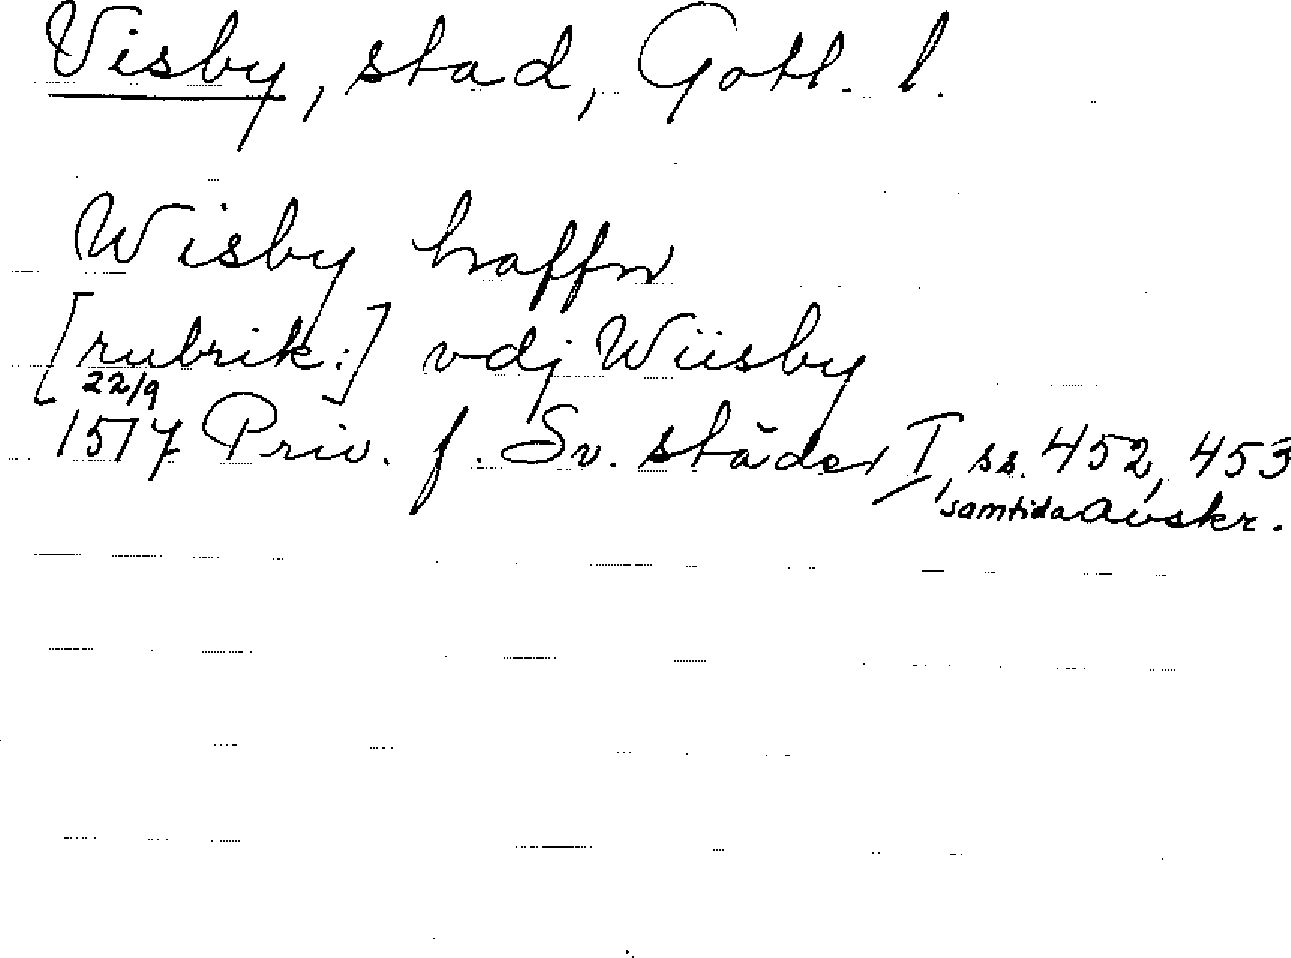 Visby, stad, Gotl. l.
Wisby haffn
[rubrik:] vdj Wiisby
22/9
1517 Priv. f. Sv. städer I, ss. 452, 453
samtida avskr.